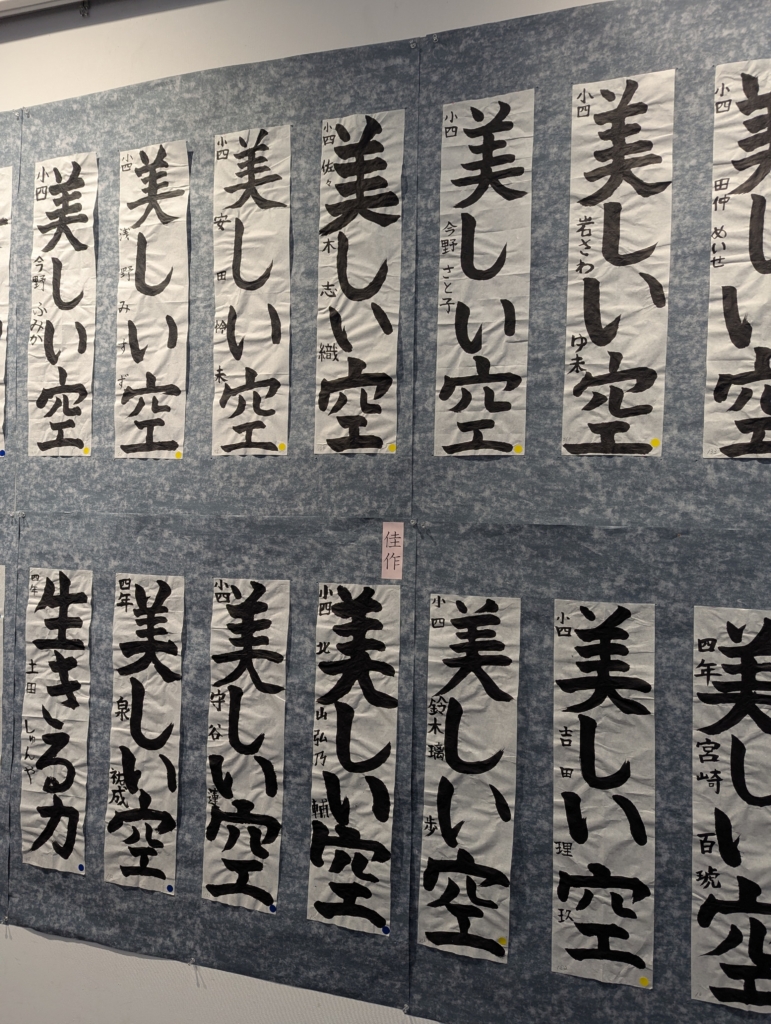 美しい空
小四 田仲 めいせ
美しい空
小四 岩さわ ゆ未
美しい空
小四 今野 さと子
美しい空
小四 佐々木 志織
美しい空
小四 安田 怜未
美しい空
小四 浅野 みすず
美しい空
小四 今野 ふみか
美しい空
四年 宮崎 百琥
美しい空
小四 吉田 理玖
美しい空
小四 鈴木 璃歩
佳作
美しい空
小四 北山 弘乃輔
美しい空
小四 守谷 蓮
美しい空
四年 泉 祐成
生きる力
四年 土田 しゅんや